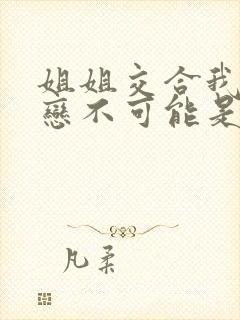 姐姐交合我
戀不可能是
凡柔